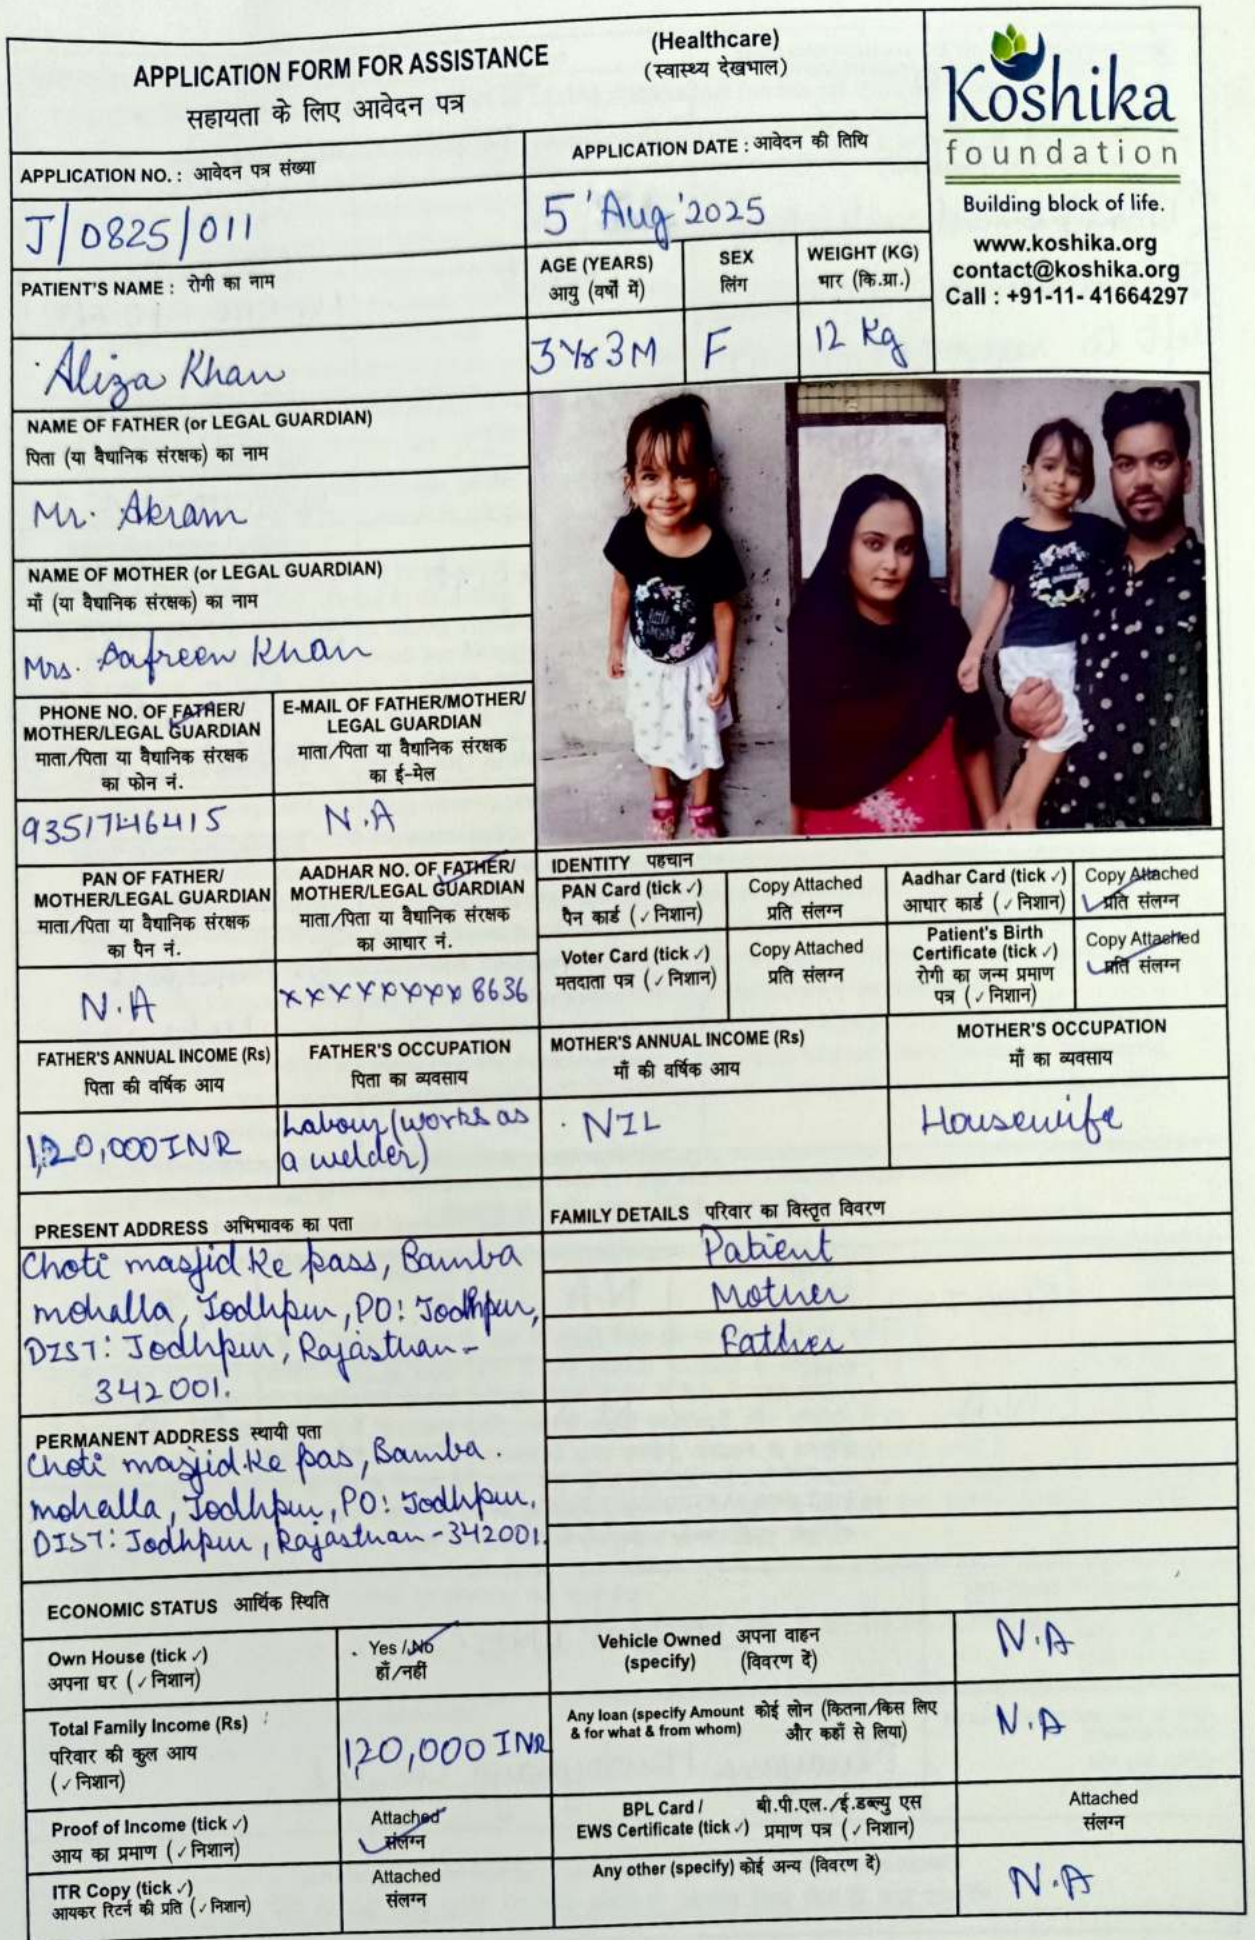 APPLICATION FORM FOR ASSISTANCE
(Healthcare)
सहायता के लिए आवेदन पत्र
(स्वास्थ्य देखभाल)
Koshika
foundation
Building block of life.
www.koshika.org
contact@koshika.org
Call : +91-11- 41664297
APPLICATION NO. : आवेदन पत्र संख्या
APPLICATION DATE : आवेदन की तिथि
J/0825/011
5 'Aug '2025
PATIENT'S NAME : रोगी का नाम
AGE (YEARS)
आयु (वर्षों में)
SEX
लिंग
WEIGHT (KG)
भार (कि.ग्रा.)
Aliza Khan
3 Yr 3M
F
12 Kg
NAME OF FATHER (or LEGAL GUARDIAN)
पिता (या वैधानिक संरक्षक) का नाम
Mr. Akram
NAME OF MOTHER (or LEGAL GUARDIAN)
माँ (या वैधानिक संरक्षक) का नाम
Mrs. Aafreen Khan
PHONE NO. OF FATHER/
MOTHER/LEGAL GUARDIAN
माता/पिता या वैधानिक संरक्षक
का फोन नं.
E-MAIL OF FATHER/MOTHER/
LEGAL GUARDIAN
माता/पिता या वैधानिक संरक्षक
का ई-मेल
9351746415
N.A
PAN OF FATHER/
MOTHER/LEGAL GUARDIAN
माता/पिता या वैधानिक संरक्षक
का पैन नं.
AADHAR NO. OF FATHER/
MOTHER/LEGAL GUARDIAN
माता/पिता या वैधानिक संरक्षक
का आधार नं.
N.A
xxxxxxxx 8636
IDENTITY पहचान
PAN Card (tick ✓)
पैन कार्ड (✓ निशान)
Copy Attached
प्रति संलग्न
Aadhar Card (tick ✓)
आधार कार्ड (✓ निशान)
Copy Attached
प्रति संलग्न
Voter Card (tick ✓)
मतदाता पत्र (✓ निशान)
Copy Attached
प्रति संलग्न
Patient's Birth
Certificate (tick ✓)
रोगी का जन्म प्रमाण
पत्र (✓ निशान)
Copy Attached
प्रति संलग्न
FATHER'S ANNUAL INCOME (Rs)
पिता की वार्षिक आय
FATHER'S OCCUPATION
पिता का व्यवसाय
MOTHER'S ANNUAL INCOME (Rs)
माँ की वार्षिक आय
MOTHER'S OCCUPATION
माँ का व्यवसाय
1,20,000 INR
Labour (works as
a welder)
NIL
Housewife
PRESENT ADDRESS अभिभावक का पता
Choti masjid ke pass, Bamba
mohalla, Jodhpur, PO: Jodhpur,
DIST: Jodhpur, Rajasthan -
342001.
FAMILY DETAILS परिवार का विस्तृत विवरण
Patient
Mother
Father
PERMANENT ADDRESS स्थायी पता
Choti masjid ke pas, Bamba.
mohalla, Jodhpur, PO: Jodhpur.
DIST: Jodhpur, Rajasthan - 342001.
ECONOMIC STATUS आर्थिक स्थिति
Own House (tick ✓)
अपना घर (✓ निशान)
Yes / No
हाँ/नहीं
Vehicle Owned अपना वाहन
(specify) (विवरण दें)
N.A
Total Family Income (Rs)
परिवार की कुल आय
(✓ निशान)
1,20,000 INR
Any loan (specify Amount कोई लोन (कितना/किस लिए
& for what & from whom) और कहाँ से लिया)
N.A
Proof of Income (tick ✓)
आय का प्रमाण (✓ निशान)
Attached
संलग्न
BPL Card / बी.पी.एल./ई.डब्ल्यु एस
EWS Certificate (tick ✓) प्रमाण पत्र (✓ निशान)
Attached
संलग्न
ITR Copy (tick ✓)
आयकर रिटर्न की प्रति (✓ निशान)
Attached
संलग्न
Any other (specify) कोई अन्य (विवरण दें)
N.A